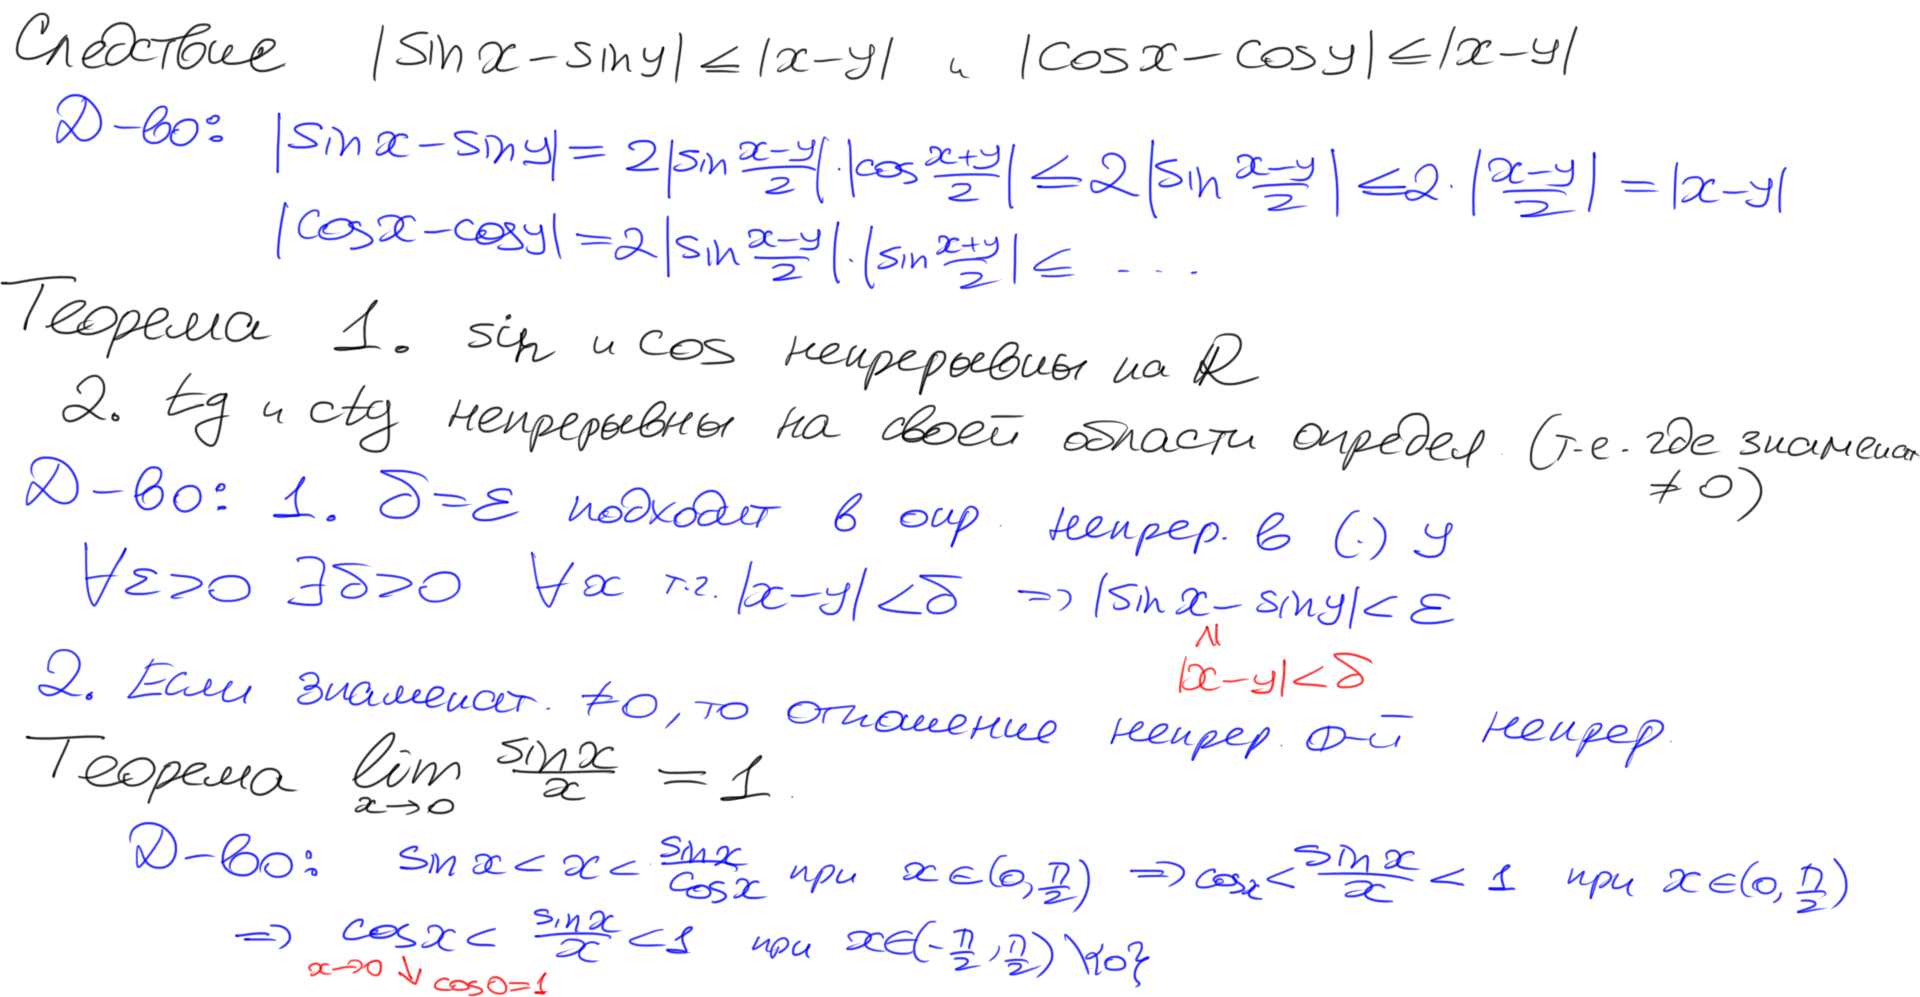 Следствие |sin x − sin y| ≤ |x−y| и |cos x − cos y| ≤ |x−y|
Д-во: |sin x − sin y| = 2|sin (x−y)/2|·|cos (x+y)/2| ≤ 2|sin (x−y)/2| ≤ 2·|(x−y)/2| = |x−y|
|cos x − cos y| = 2|sin (x−y)/2|·|sin (x+y)/2| ≤ ...
Теорема 1. sin и cos непрерывны на R
2. tg и ctg непрерывны на своей области определ. (т.е. где знаменат
≠ 0)
Д-во: 1. δ=ε подходит в опр. непрер. в (·) y
∀ε>0 ∃δ>0 ∀x т.ч. |x−y|<δ => |sin x − sin y| < ε
≤
|x−y|<δ
2. Если знаменат. ≠0, то отношение непрер. ф-й непрер.
Теорема lim x→0 sin x/x = 1.
Д-во: sin x < x < sin x/cos x при x∈(0, π/2) => cos x < sin x/x < 1 при x∈(0, π/2)
=> cos x < sin x/x < 1 при x∈(−π/2, π/2) \{0}
x→0 ↓ cos 0=1